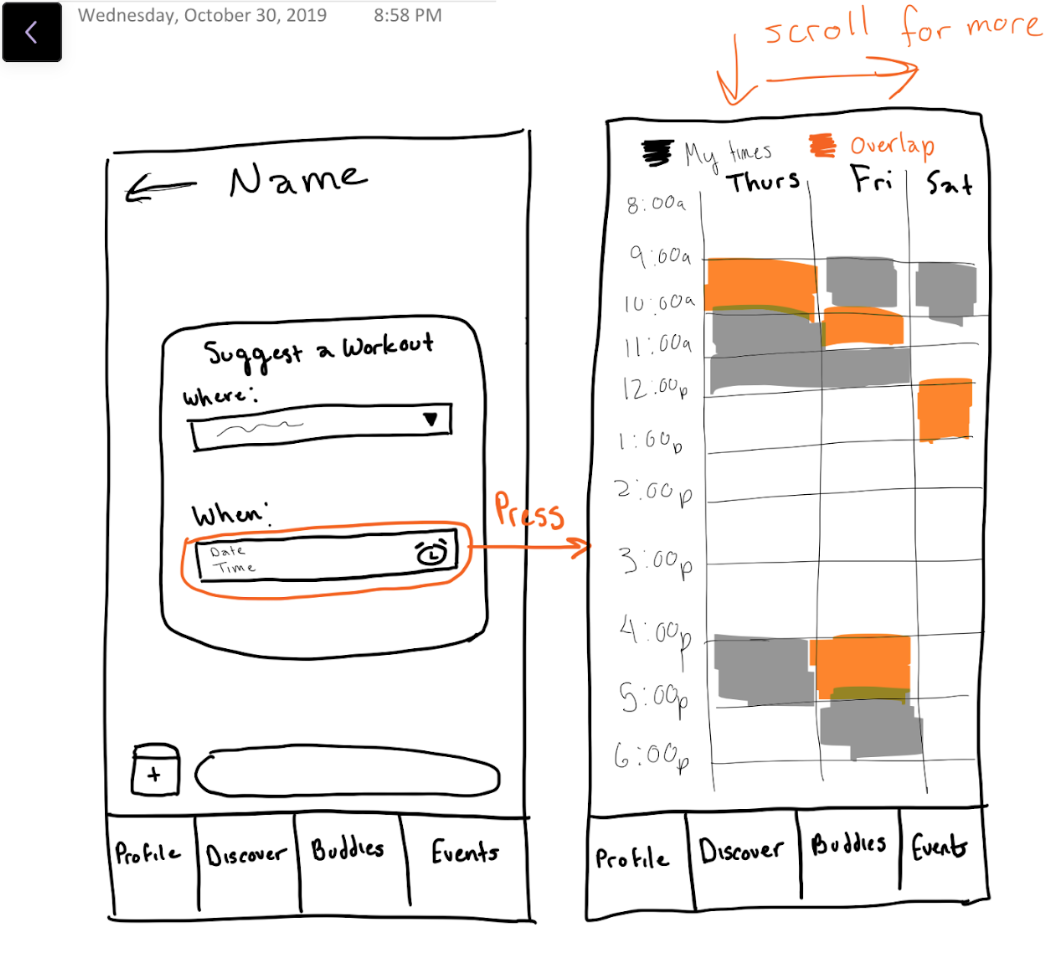 Wednesday, October 30, 2019 8:58 PM
scroll for more
Name
Suggest a Workout
where:
When:
Date
Time
Press
+
Profile Discover Buddies Events
My times Overlap
Thurs Fri Sat
8:00a
9:00a
10:00a
11:00a
12:00p
1:00p
2:00p
3:00p
4:00p
5:00p
6:00p
Profile Discover Buddies Events